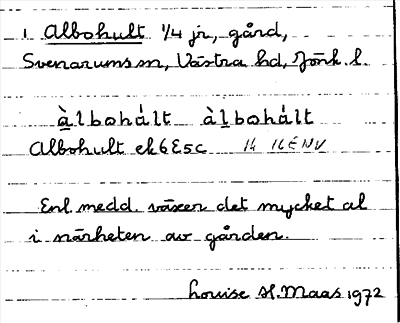 1 Albohult 1/4 jr, gård,
Svenarums sn, Västra hd, Jönk. l.
àlbohált àlbohált
Albohult ek6E5c
Enl. medd. växer det mycket al
i närheten av gården.
Louise H. Maas 1972